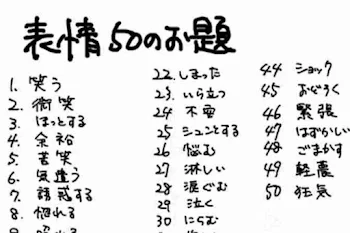 表情50のお題
1. 笑う
2. 微笑
3. ほっとする
4. 余裕
5. 苦笑
6. 気遣う
7. 誘惑する
8. 惚れる
22. しまった
23. いら立つ
24 不安
25 シュンとする
26 悩む
27 淋しい
28 涙ぐむ
29 泣く
30 にらむ
44 ショック
45 おどろく
46 緊張
47 はずかしい
48 ごまかす
49 軽蔑
50 狂気